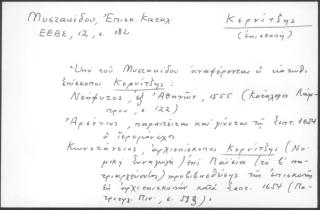 Μυστακίδου, Ἐπισκ. Καταλ.
Κερνίτζης
ΕΕΒΣ, 12, σ. 182
(ἐπισκοπή)
Ὑπό τοῦ Μυστακίδου ἀναφέρονται οἱ κάτωθι
ἐπίσκοποι Κερνίτζης:
Νεόφυτος, ἐξ Ἀθηνῶν, 1555 (Κατάλογος Λάμ-
πρου, σ. 122)
Ἀρσένιος, παραιτεῖται καὶ γίνεται τῇ Σεπτ. 1654
ὁ ἱερομόναχος
Κωνστάντιος, ἀρχιεπίσκοπος Κερνίτζης (Νο-
μική Συναγωγή) ἐπί Παϊσίου (τό β' πα-
τριαρχεύοντος) προβιβασθείσης τῆς ἐπισκοπῆς
εἰς ἀρχιεπισκοπήν κατά Σεπτ. 1654 (Πα-
τριαρχ. Πιν., σ. 573).